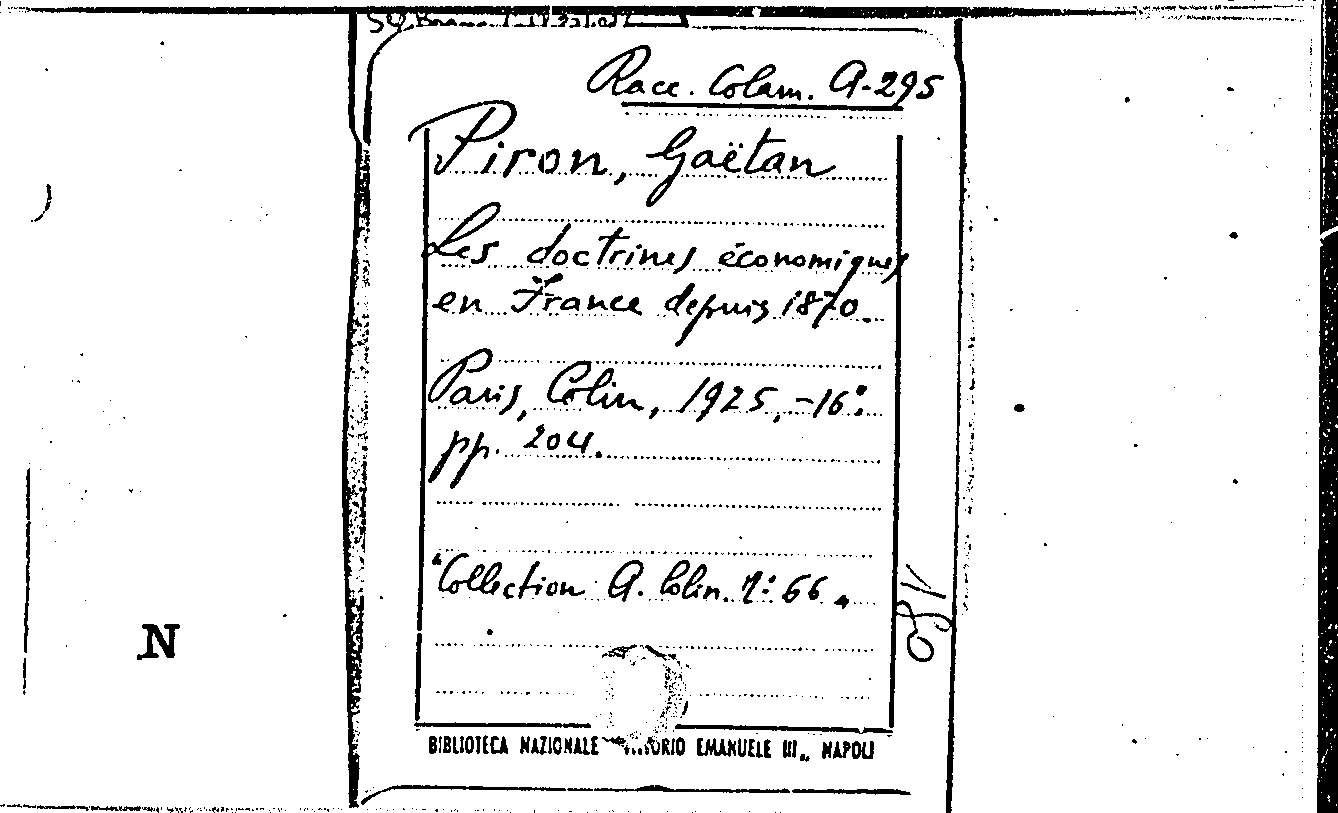 Racc. Colam. A-295
Piron, Gaëtan
Les doctrines économiques
en France depuis 1870.
Paris, Colin, 1925, -16°.
pp. 204.
"Collection A. Colin. n: 66"
180
BIBLIOTECA NAZIONALE EMANUELE III„ NAPOLI
N